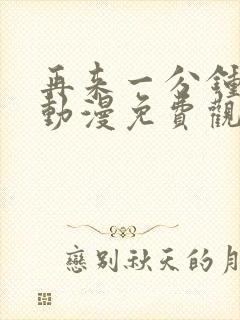 再来一分鍾
動漫免費觀
戀别秋天的月